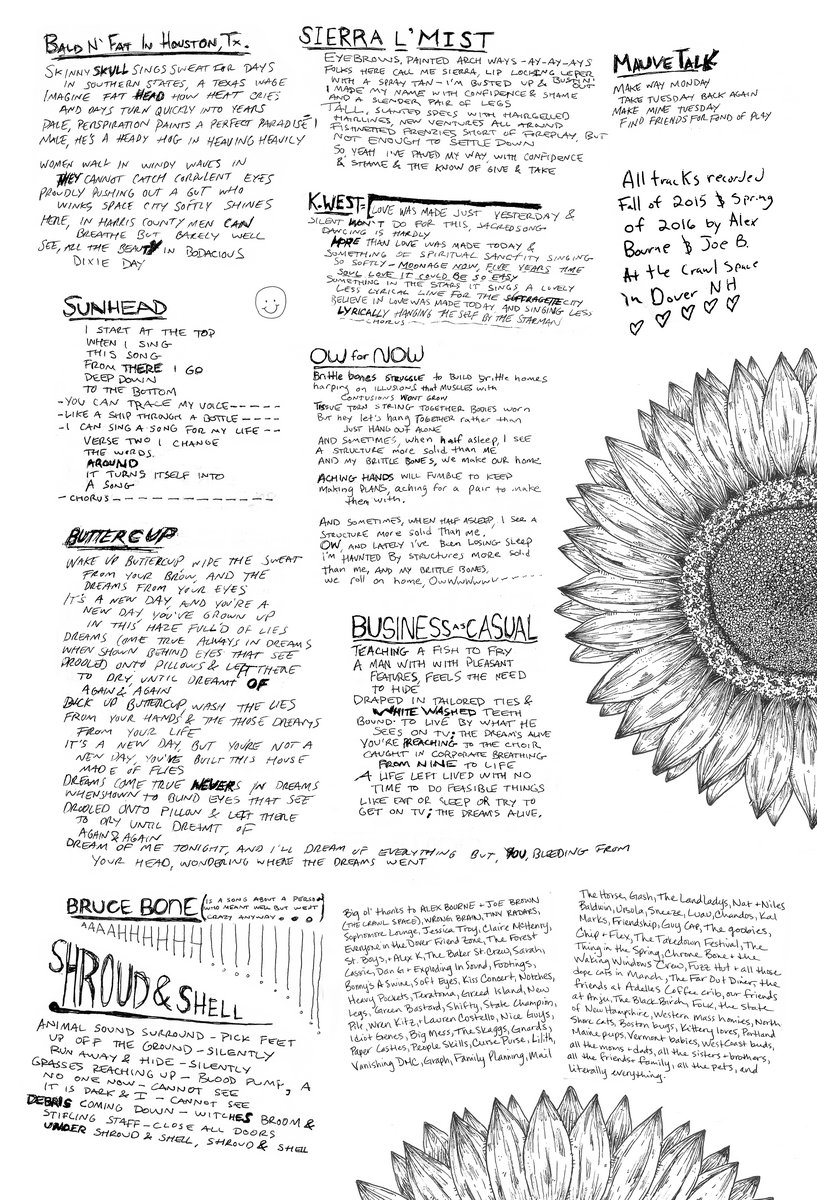 BALD N' FAT IN HOUSTON, TX.
SKINNY SKULL SINGS SWEAT FOR DAYS
IN SOUTHERN STATES, A TEXAS WAGE
IMAGINE FAT HEAD HOW HEAT CRIES
AND DAYS TURN QUICKLY INTO YEARS
DALE, PERSPIRATION PAINTS A PERFECT PARADISE!
MALE, HE'S A HEADY HOG IN HEAVING HEAVILY
WOMEN WALK IN WINDY WAVES IN
THEY CANNOT CATCH CORPULENT EYES
PROUDLY PUSHING OUT A GUT WHO
WINKS, SPACE CITY SOFTLY SHINES
HERE, IN HARRIS COUNTY MEN CAN
BREATHE BUT BARELY WELL
SEE, ALL THE BEAUTY IN BODACIOUS
DIXIE DAY
SUNHEAD
I START AT THE TOP
WHEN I SING
THIS SONG
FROM THERE I GO
DEEP DOWN
TO THE BOTTOM
-YOU CAN TRACE MY VOICE-----
-LIKE A SHIP THROUGH A BOTTLE----
-I CAN SING A SONG FOR MY LIFE---
VERSE TWO I CHANGE
THE WORDS.
AROUND
IT TURNS ITSELF INTO
A SONG
-CHORUS---------------
BUTTERCUP
WAKE UP BUTTERCUP WIDE THE SWEAT
FROM YOUR BROW, AND THE
DREAMS FROM YOUR EYES
IT'S A NEW DAY, AND YOU'RE A
NEW DAY, YOU'VE GROWN UP
IN THIS HAZE FULL'D OF LIES
DREAMS COME TRUE ALWAYS IN DREAMS
WHEN SHOWN BEHIND EYES THAT SEE
DROOLED ONTO PILLOWS & LEFT THERE
TO DRY, UNTIL DREAMT OF
AGAIN & AGAIN
BUCK UP BUTTERCUP, WASH THE LIES
FROM YOUR HANDS & THE THOSE DREAMS
FROM YOUR LIFE
IT'S A NEW DAY, BUT YOU'RE NOT A
NEW DAY, YOU'VE BUILT THIS HOUSE
MADE OF FLIES
DREAMS COME TRUE NEVER IN DREAMS
WHEN SHOWN TO BLIND EYES THAT SEE
DROOLED ONTO PILLOW & LEFT THERE
TO DRY UNTIL DREAMT OF
AGAIN & AGAIN
DREAM OF ME TONIGHT, AND I'LL DREAM OF EVERYTHING BUT, YOU, BLEEDING FROM
YOUR HEAD, WONDERING WHERE THE DREAMS WENT
BRUCE BONE (IS A SONG ABOUT A PERSON
WHO MEANT WELL BUT WENT
CRAZY ANYWAY...)
AAAAHHHHHHH!!!!!!!!!
SHROUD & SHELL
ANIMAL SOUND SURROUND - PICK FEET
UP OFF THE GROUND - SILENTLY
RUN AWAY & HIDE - SILENTLY
GRASSES REACHING UP - BLOOD PUMP, A
NO ONE NOW - CANNOT SEE
IT IS DARK & I - CANNOT SEE
DEBRIS COMING DOWN - WITCHES BROOM &
STIFLING STAFF - CLOSE ALL DOORS
UNDER SHROUD & SHELL, SHROUD & SHELL
SIERRA L'MIST
EYEBROWS, PAINTED ARCH WAYS-AY-AY-AYS
FOLKS HERE CALL ME SIERRA, LIP LOCKING LEPER
WITH A SPRAY TAN - I'M BUSTED UP & BUSTIN' OUT
I MADE MY NAME WITH CONFIDENCE & SHAME
AND A SLENDER PAIR OF LEGS
TALL, SLANTED SPECS WITH HAIRGELLED
HAIRLINES, NEW VENTURES ALL AROUND
FISHNETTED FRENZIES SHORT OF FIREPLAY, BUT
NOT ENOUGH TO SETTLE DOWN
SO YEAH I'VE PAVED MY WAY, WITH CONFIDENCE
& SHAME & THE KNOW OF GIVE & TAKE
K-WEST-
LOVE WAS MADE JUST YESTERDAY &
SILENT WON'T DO FOR THIS, SACRED SONG
DANCING IS HARDLY
MORE THAN LOVE WAS MADE TODAY &
SOMETHING OF SPIRITUAL SANCTITY SINGING
SO SOFTLY - MOONAGE NOW, FIVE YEARS TIME
SOUL LOVE IT COULD BE SO EASY
SOMETHING IN THE STARS IT SINGS, A LOVELY
LESS LYRICAL LINE FOR THE SUFFRAGETTE CITY
BELIEVE IN LOVE WAS MADE TODAY, AND SINGING LESS
LYRICALLY HANGING THE SELF BY THE STARMAN
-CHORUS-
OW for NOW
Brittle bones STRUGGLE to BUILD brittle homes
harping on ILLUSIONS that MUSCLES with
CONTUSIONS WONT GROW
TISSUE TORN STRING TOGETHER BODIES WORN
But hey let's hang TOGETHER rather than
JUST HANG OUT ALONE
AND SOMETIMES, when half asleep, I SEE
A STRUCTURE more SOLID than ME
AND MY BRITTLE BONES, WE make OUR home.
ACHING HANDS WILL FUMBLE TO KEEP
Making PLANS, aching for a pair to make
them with.
AND SOMETIMES, WHEN HALF ASLEEP, I SEE A
STRUCTURE more solid Than me.
OW, AND LATELY I'VE BEEN LOSING SLEEP
I'M HAUNTED BY STRUCTURES MORE SOLID
than me, AND MY BRITTLE BONES,
we roll on home, Owwwwwww-----
BUSINESS AS CASUAL
TEACHING A FISH TO FRY
A MAN WITH WITH PLEASANT
FEATURES, FEELS THE NEED
TO HIDE
DRAPED IN TAILORED TIES &
WHITE WASHED TEETH
BOUND. TO LIVE BY WHAT HE
SEES ON TV; THE DREAMS ALIVE
YOU'RE PREACHING TO THE CHOIR
CAUGHT IN CORPORATE BREATHING
FROM NINE TO LIFE
A LIFE LEFT LIVED WITH NO
TIME TO DO FEASIBLE THINGS
LIKE EAT OR SLEEP OR TRY TO
GET ON TV; THE DREAMS ALIVE.
MAUVE TALK
MAKE WAY MONDAY
TAKE TUESDAY BACK AGAIN
MAKE MINE TUESDAY
FIND FRIENDS FOR FOND OF PLAY
All tracks recorded
Fall of 2015 & Spring
of 2016 by Alex
Bourne & Joe B.
At the Crawl Space
in Dover NH
Big ol' thanks to ALEX BOURNE + JOE BROWN
(THE CRAWL SPACE), WRONG BRAIN, TINY RADARS,
Sophomore Lounge, Jessica Troy, Claire McHenry,
Everyone in the Dover Friend Zone, The Forest
St. Boys, + Alex K, The Baker St. Crew, Sarah,
Cassie, Dan G + Exploding In Sound, Footings,
Bunnys A Swine, Soft Eyes, Kiss Concert, Notches,
Heavy Pockets, Teratoma, Greed Island, New
Legs, Green Bastard, Shifty, State Champion,
Pile, Wren Kitz, Lauren Costello, Nice Guys,
Idiot Genes, Big Mess, The Skaggs, Gnards,
Paper Castles, People Skills, Curse Purse, Lilith,
Vanishing DHC, Graph, Family Planning, Mail
The Horse, Gash, The Landladys, Nat + Niles
Baldwin, Ursula, Sneeze, Luau, Chandos, Kal
Marks, Friendship, Guy Capp, The goodnies,
Chip + Flex, The Takedown Festival, The
Thing in the Spring, Chrome Bone + the
Waking Windows Crew, Fuzz Hut + all those
dope cats in Manch, The Far Out Diner, the
friends at Adelle's Coffee crib, our friends
at Anju, The Black Birch, Folk, the state
of New Hampshire, Western Mass homies, North
Shore cats, Boston bugs, Kittery loves, Portland
Maine pups, Vermont babies, West Coast buds,
all the moms + dads, all the sisters + brothers,
all the friends + family, all the pets, and
literally everything.